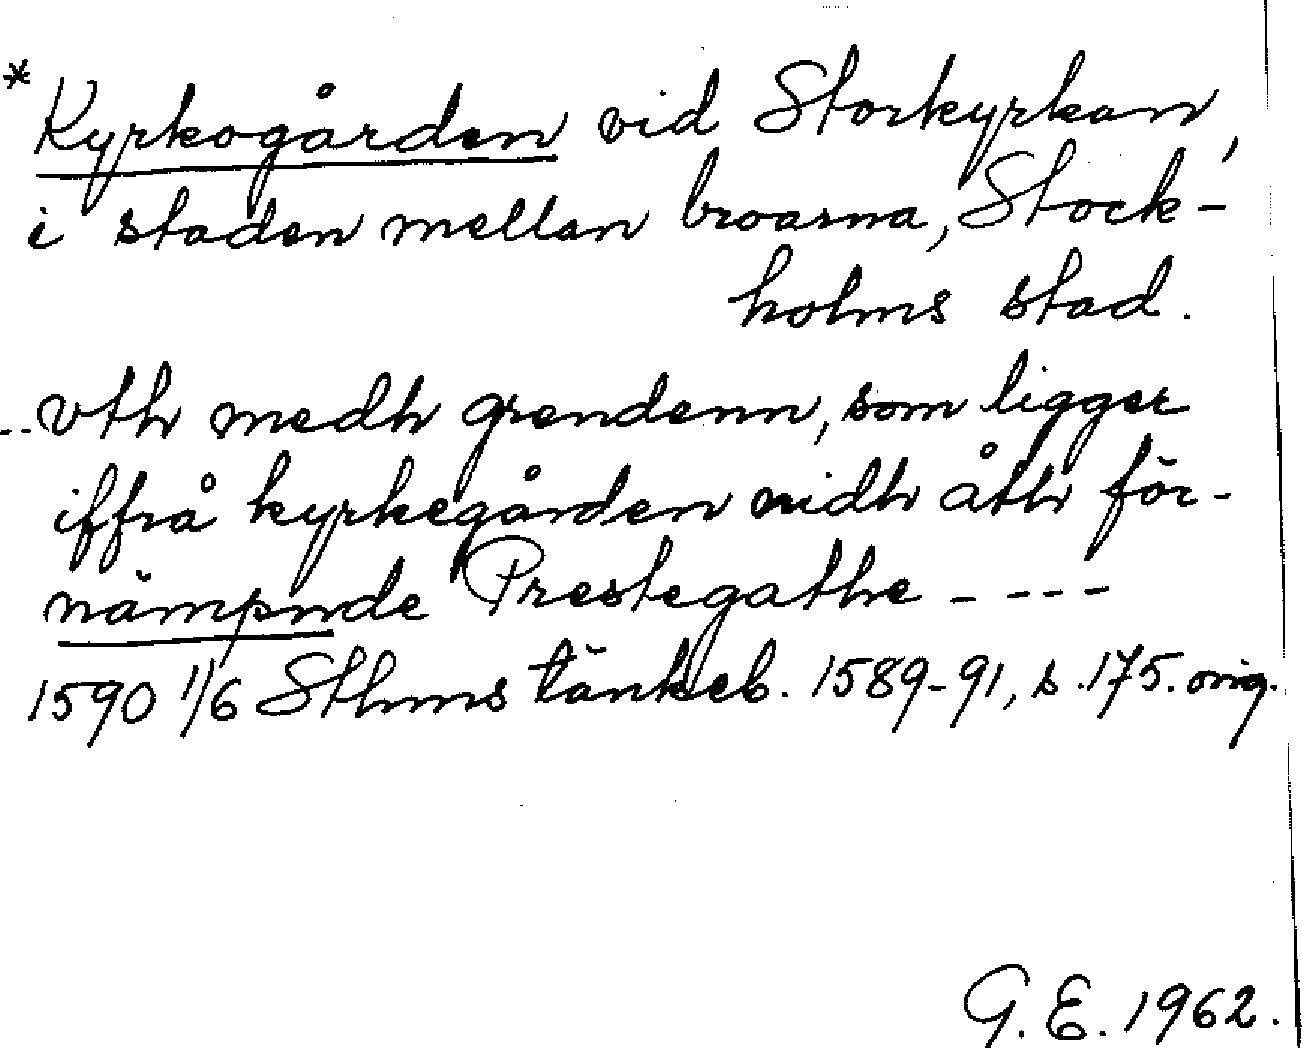 * Kyrkogården vid Storkyrkan,
i staden mellan broarna, Stock-
holms stad.
-- vth medh grendenn, som ligger
iffrå kyrkegården nidh åth för-
nämpnde Prestegathe ----
1590 1/6 Sthms tänkeb. 1589-91, s. 175. orig.
G. E. 1962.